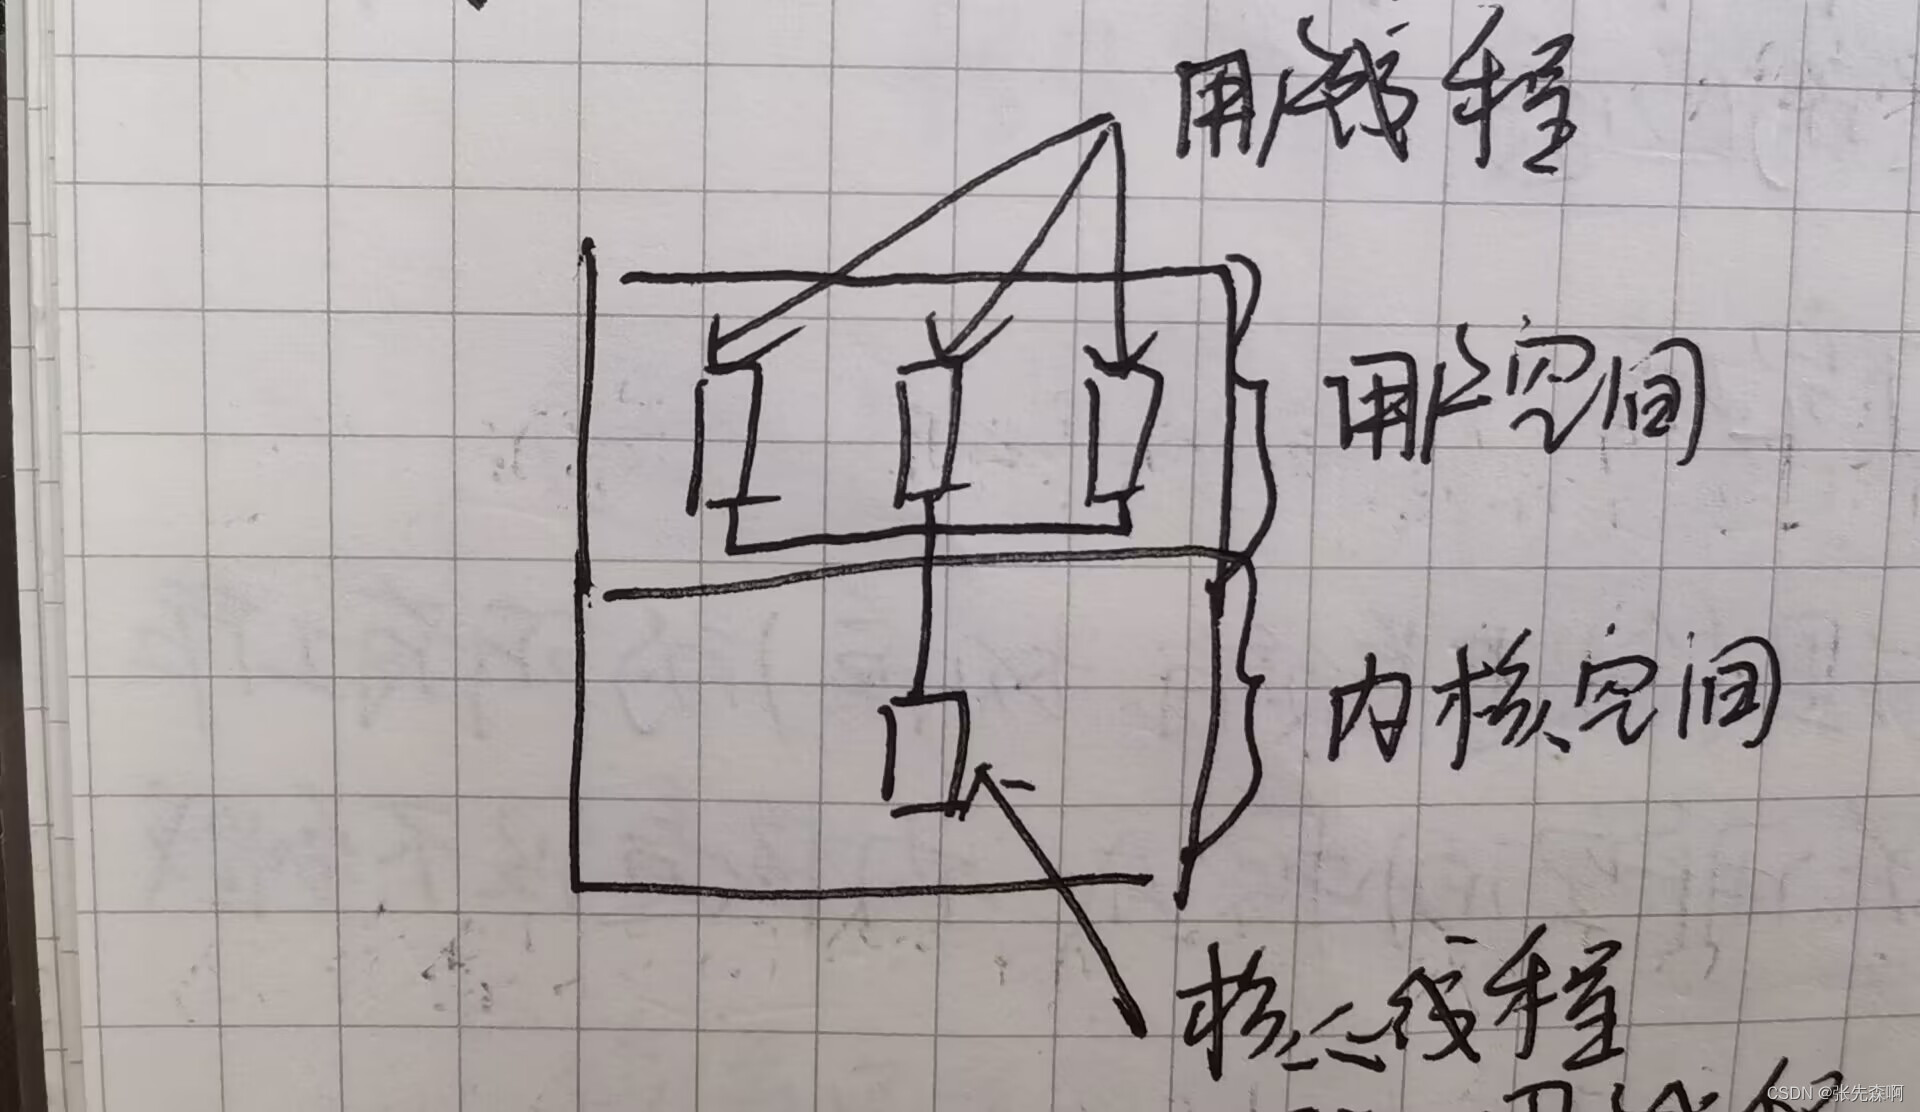 用户线程
用户空间
内核空间
核心线程
CSDN @张先森啊